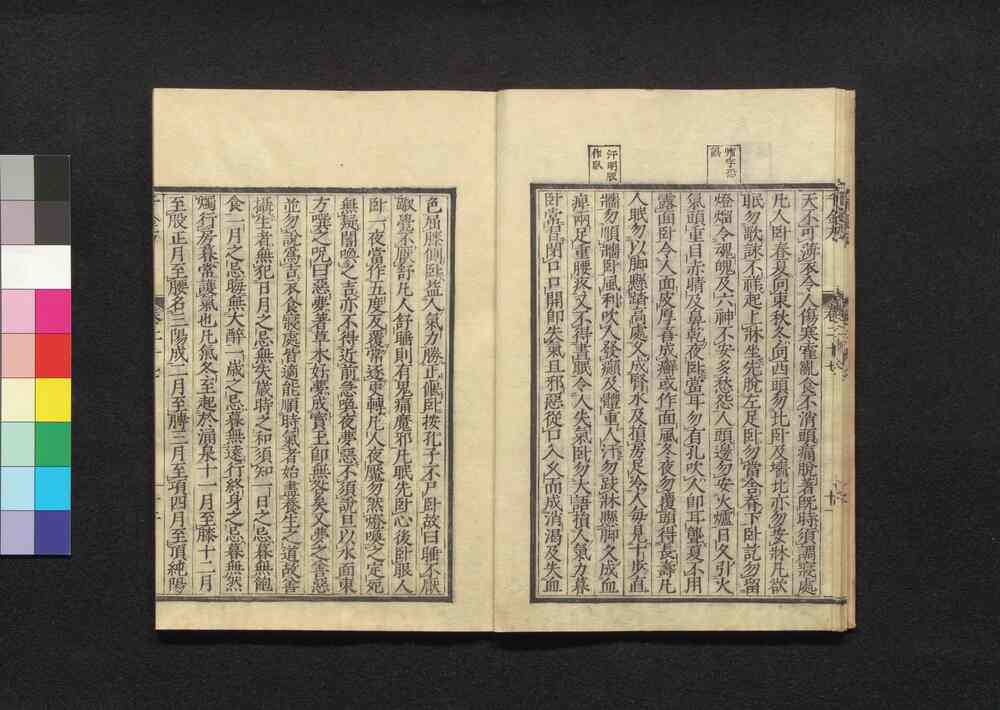 天不可薄衣令人傷寒霍亂食不消頭痛脫著既時須調寢處
凡人臥春夏向東秋冬向西頭勿北臥及墻北亦勿安牀凡欲
眠勿歌詠不祥起上牀坐先脫左足臥勿當舍脊下臥訖勿留
燈燭令魂魄及六神不安多愁怨人頭邊勿安火爐日久引火
氣頭重目赤睛及鼻乾夜臥當耳勿有孔吹人即耳聾夏不用
露面臥令人面皮厚喜成癬或作面風冬夜勿覆頭得長壽凡
人眠勿以腳懸踏高處久成腎水及損房足冷人每見十步直
墻勿順墻臥風利吹人發癲及體重人汗勿跂牀懸腳久成血
痺兩足重腰疼又不得晝眠令人失氣臥勿大語損人氣力暮
臥常習閉口口開即失氣且邪惡從口入久而成消渴及失血
色屈膝側臥益人氣力勝正偃臥按孔子不尸臥故曰睡不厭
踧覺不厭舒凡人舒睡則有鬼痛魔邪凡眠先臥心後臥眼人
臥一夜當作五度反覆常逐更轉凡人夜魘勿燃燈喚之定死
無疑闇喚之吉亦不得近前急喚夜夢惡不須說旦以水面東
方噀之呪曰惡夢著草木好夢成寶玉即無咎矣又夢之善惡
並勿說爲吉衣食寢處皆適能順時氣者始盡養生之道故善
攝生者無犯日月之忌無失歲時之和須知一日之忌暮無飽
食一月之忌晦無大醉一歲之忌暮無遠行終身之忌暮無然
燭行房暮常護氣也凡氣冬至起於涌泉十一月至膝十二月
至股正月至腰名三陽成二月至膊三月至項四月至頂純陽
汗明版
作臥